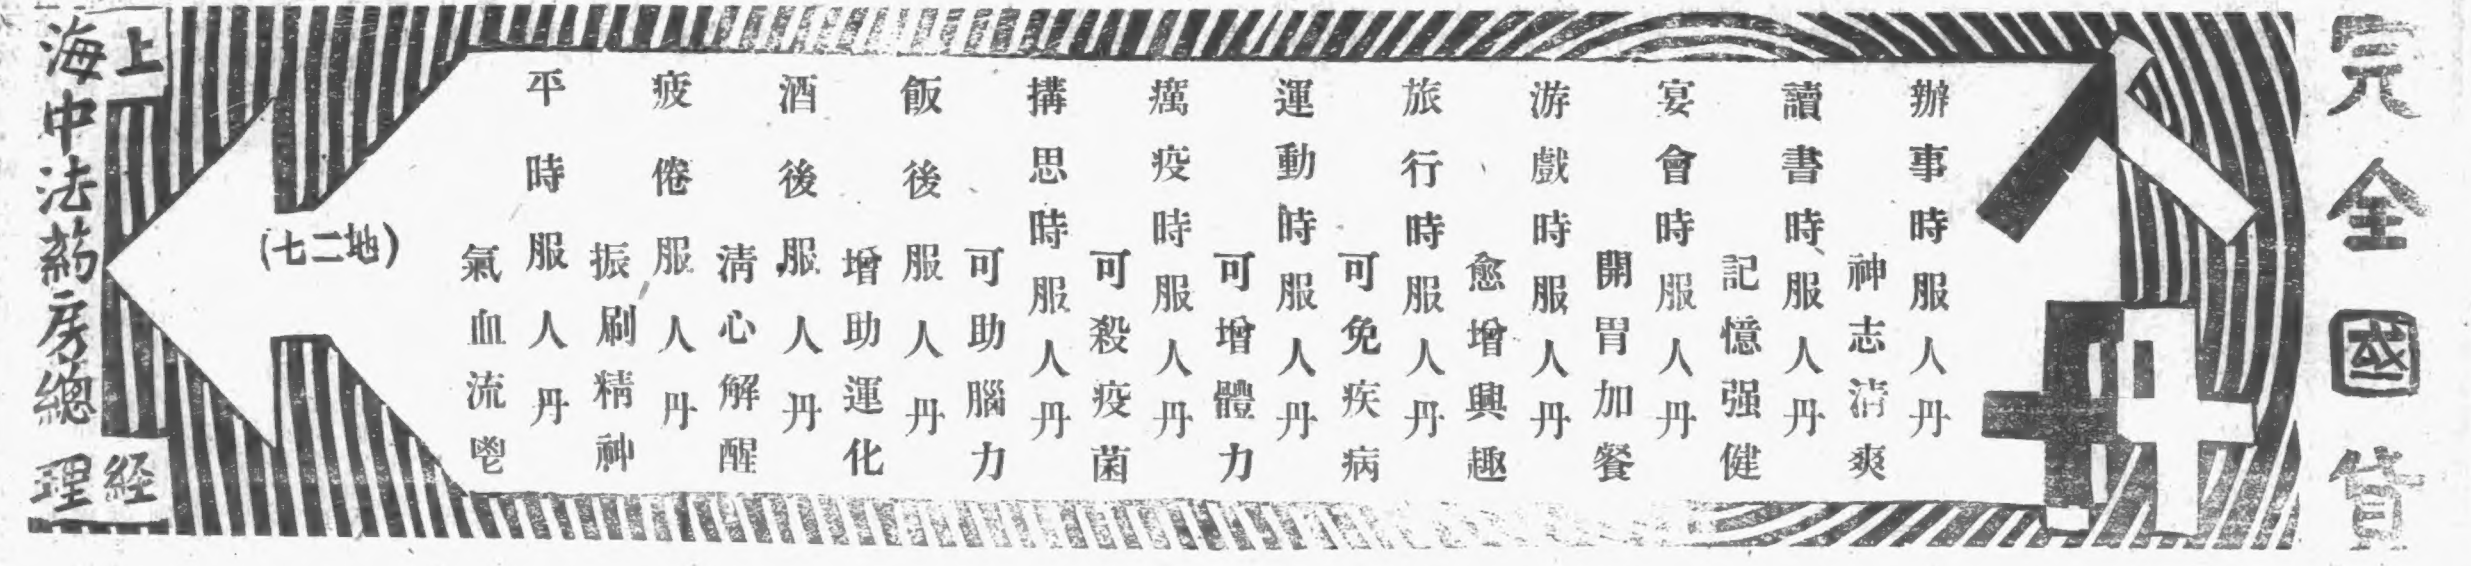 完全國貨
人丹
辦事時服人丹
神志清爽
讀書時服人丹
記憶强健
宴會時服人丹
開胃加餐
游戲時服人丹
愈增興趣
旅行時服人丹
可免疾病
運動時服人丹
可增體力
癘疫時服人丹
可殺疫菌
搆思時服人丹
可助腦力
飯後服人丹
增助運化
酒後服人丹
清心解醒
疲倦服人丹
振刷精神
平時服人丹
氣血流鬯
(地二七)
上海中法葯房總經理